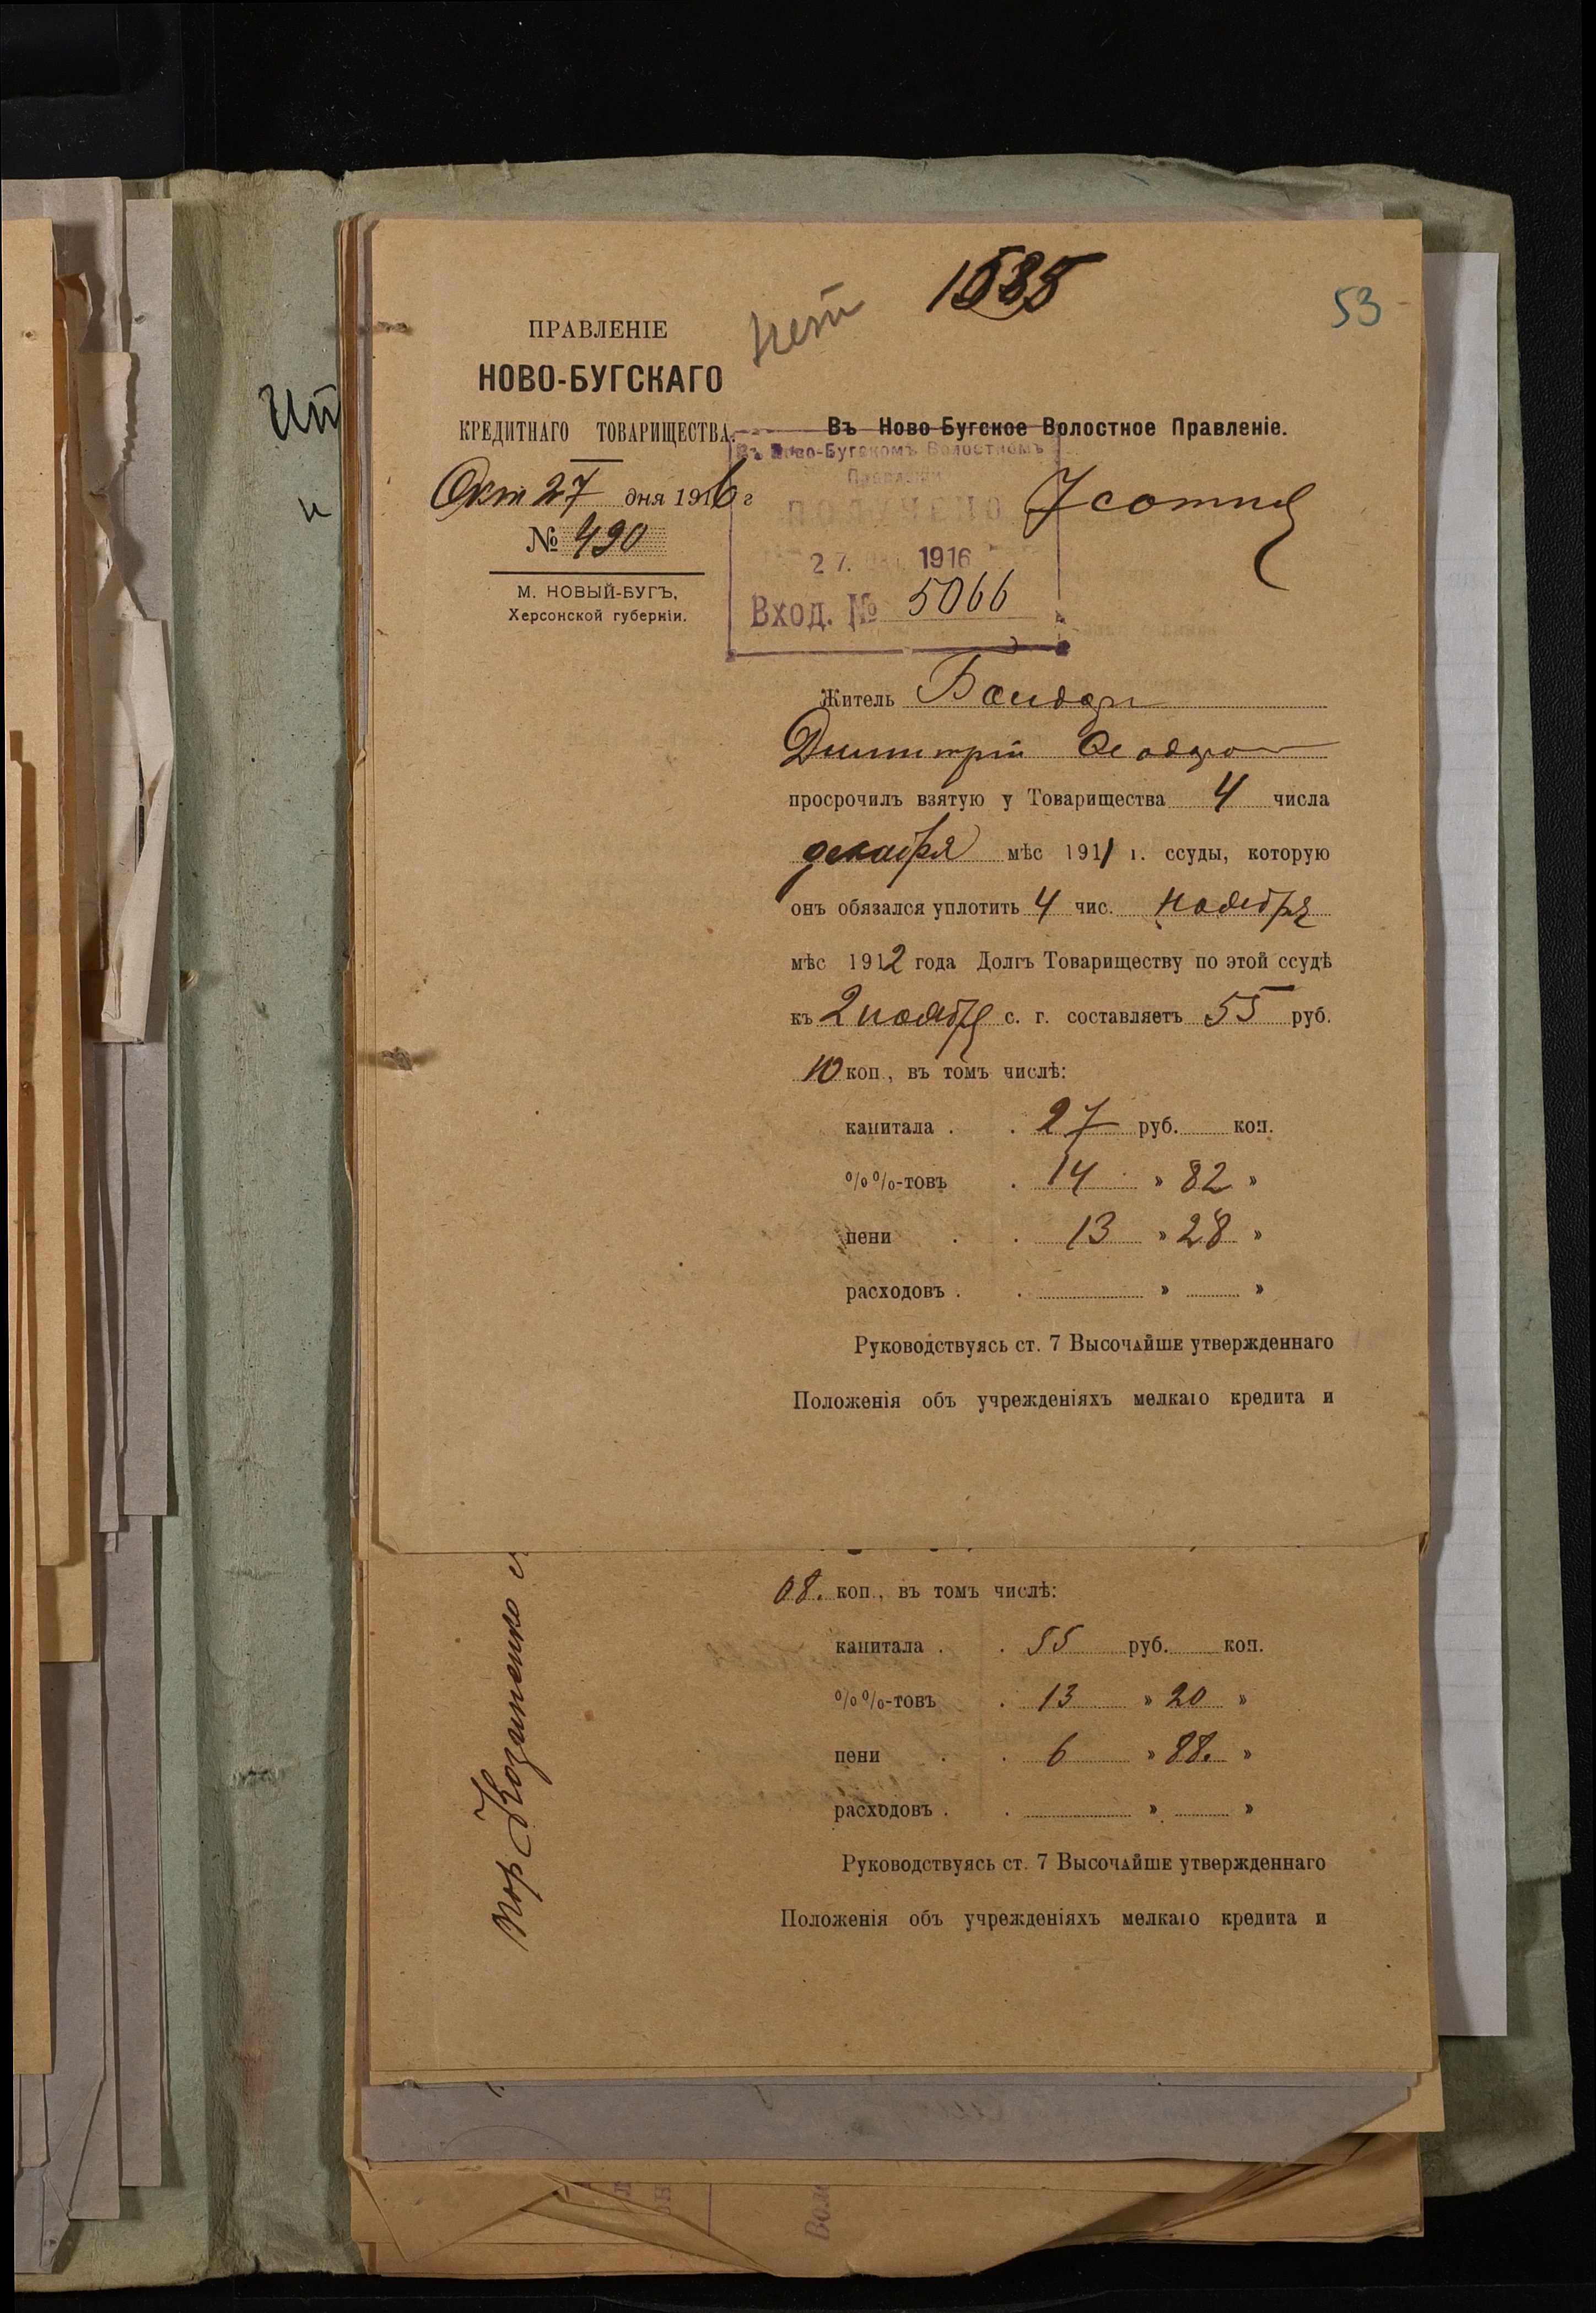 1535
53
нет
ПРАВЛЕНІЕ
НОВО-БУГСКАГО
КРЕДИТНАГО ТОВАРИЩЕСТВА.
Окт 27 дня 1916 г
№ 490
М. НОВЫЙ-БУГЪ,
Херсонской губерніи.
Въ Ново-Бугское Волостное Правленіе.
Въ Ново-Бугскомъ Волостномъ
Правленіи
27. 1916
Вход. № 5066
7 сотня
Житель Бондарь
Димитрій Ѳеодоро
просрочилъ взятую у Товарищества 4 числа
декабря мѣс 1911 г. ссуды, которую
онъ обязался уплотить 4 чис. ноября
мѣс 1912 года Долгъ Товариществу по этой ссудѣ
къ 2 ноября с. г. составляетъ 55 руб.
10 коп., въ томъ числѣ:
капитала . . 27 руб. коп.
%%-товъ . 14 » 82 »
пени . . 13 » 28 »
расходовъ . . » »
Руководствуясь ст. 7 Высочайше утвержденнаго
Положенія объ учрежденіяхъ мелкаго кредита и
08. коп., въ томъ числѣ:
капитала . . 55 руб. коп.
%%-товъ . 13 » 20 »
пени . . 6 » 88. »
расходовъ . . » »
Руководствуясь ст. 7 Высочайше утвержденнаго
Положенія объ учрежденіяхъ мелкаго кредита и
пор Козиненко